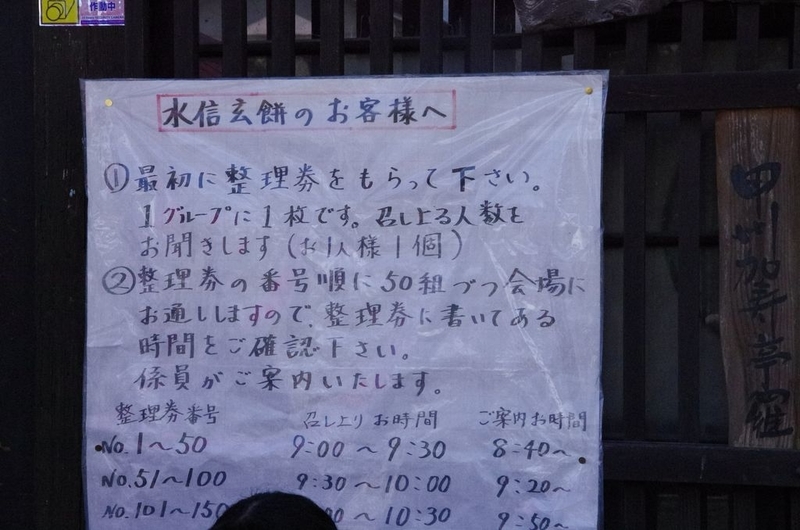 作動中
水信玄餅のお客様へ
①最初に整理券をもらって下さい。
1グループに1枚です。召し上る人数を
お聞きします(お1人様1個)
②整理券の番号順に50組づつ会場に
お通ししますので、整理券に書いてある
時間をご確認下さい。
係員がご案内いたします。
整理券番号 召し上り お時間 ご案内お時間
No.1～50 9:00～9:30 8:40～
No.51～100 9:30～10:00 9:20～
No.101～150 :00～10:30 9:50～
甲州